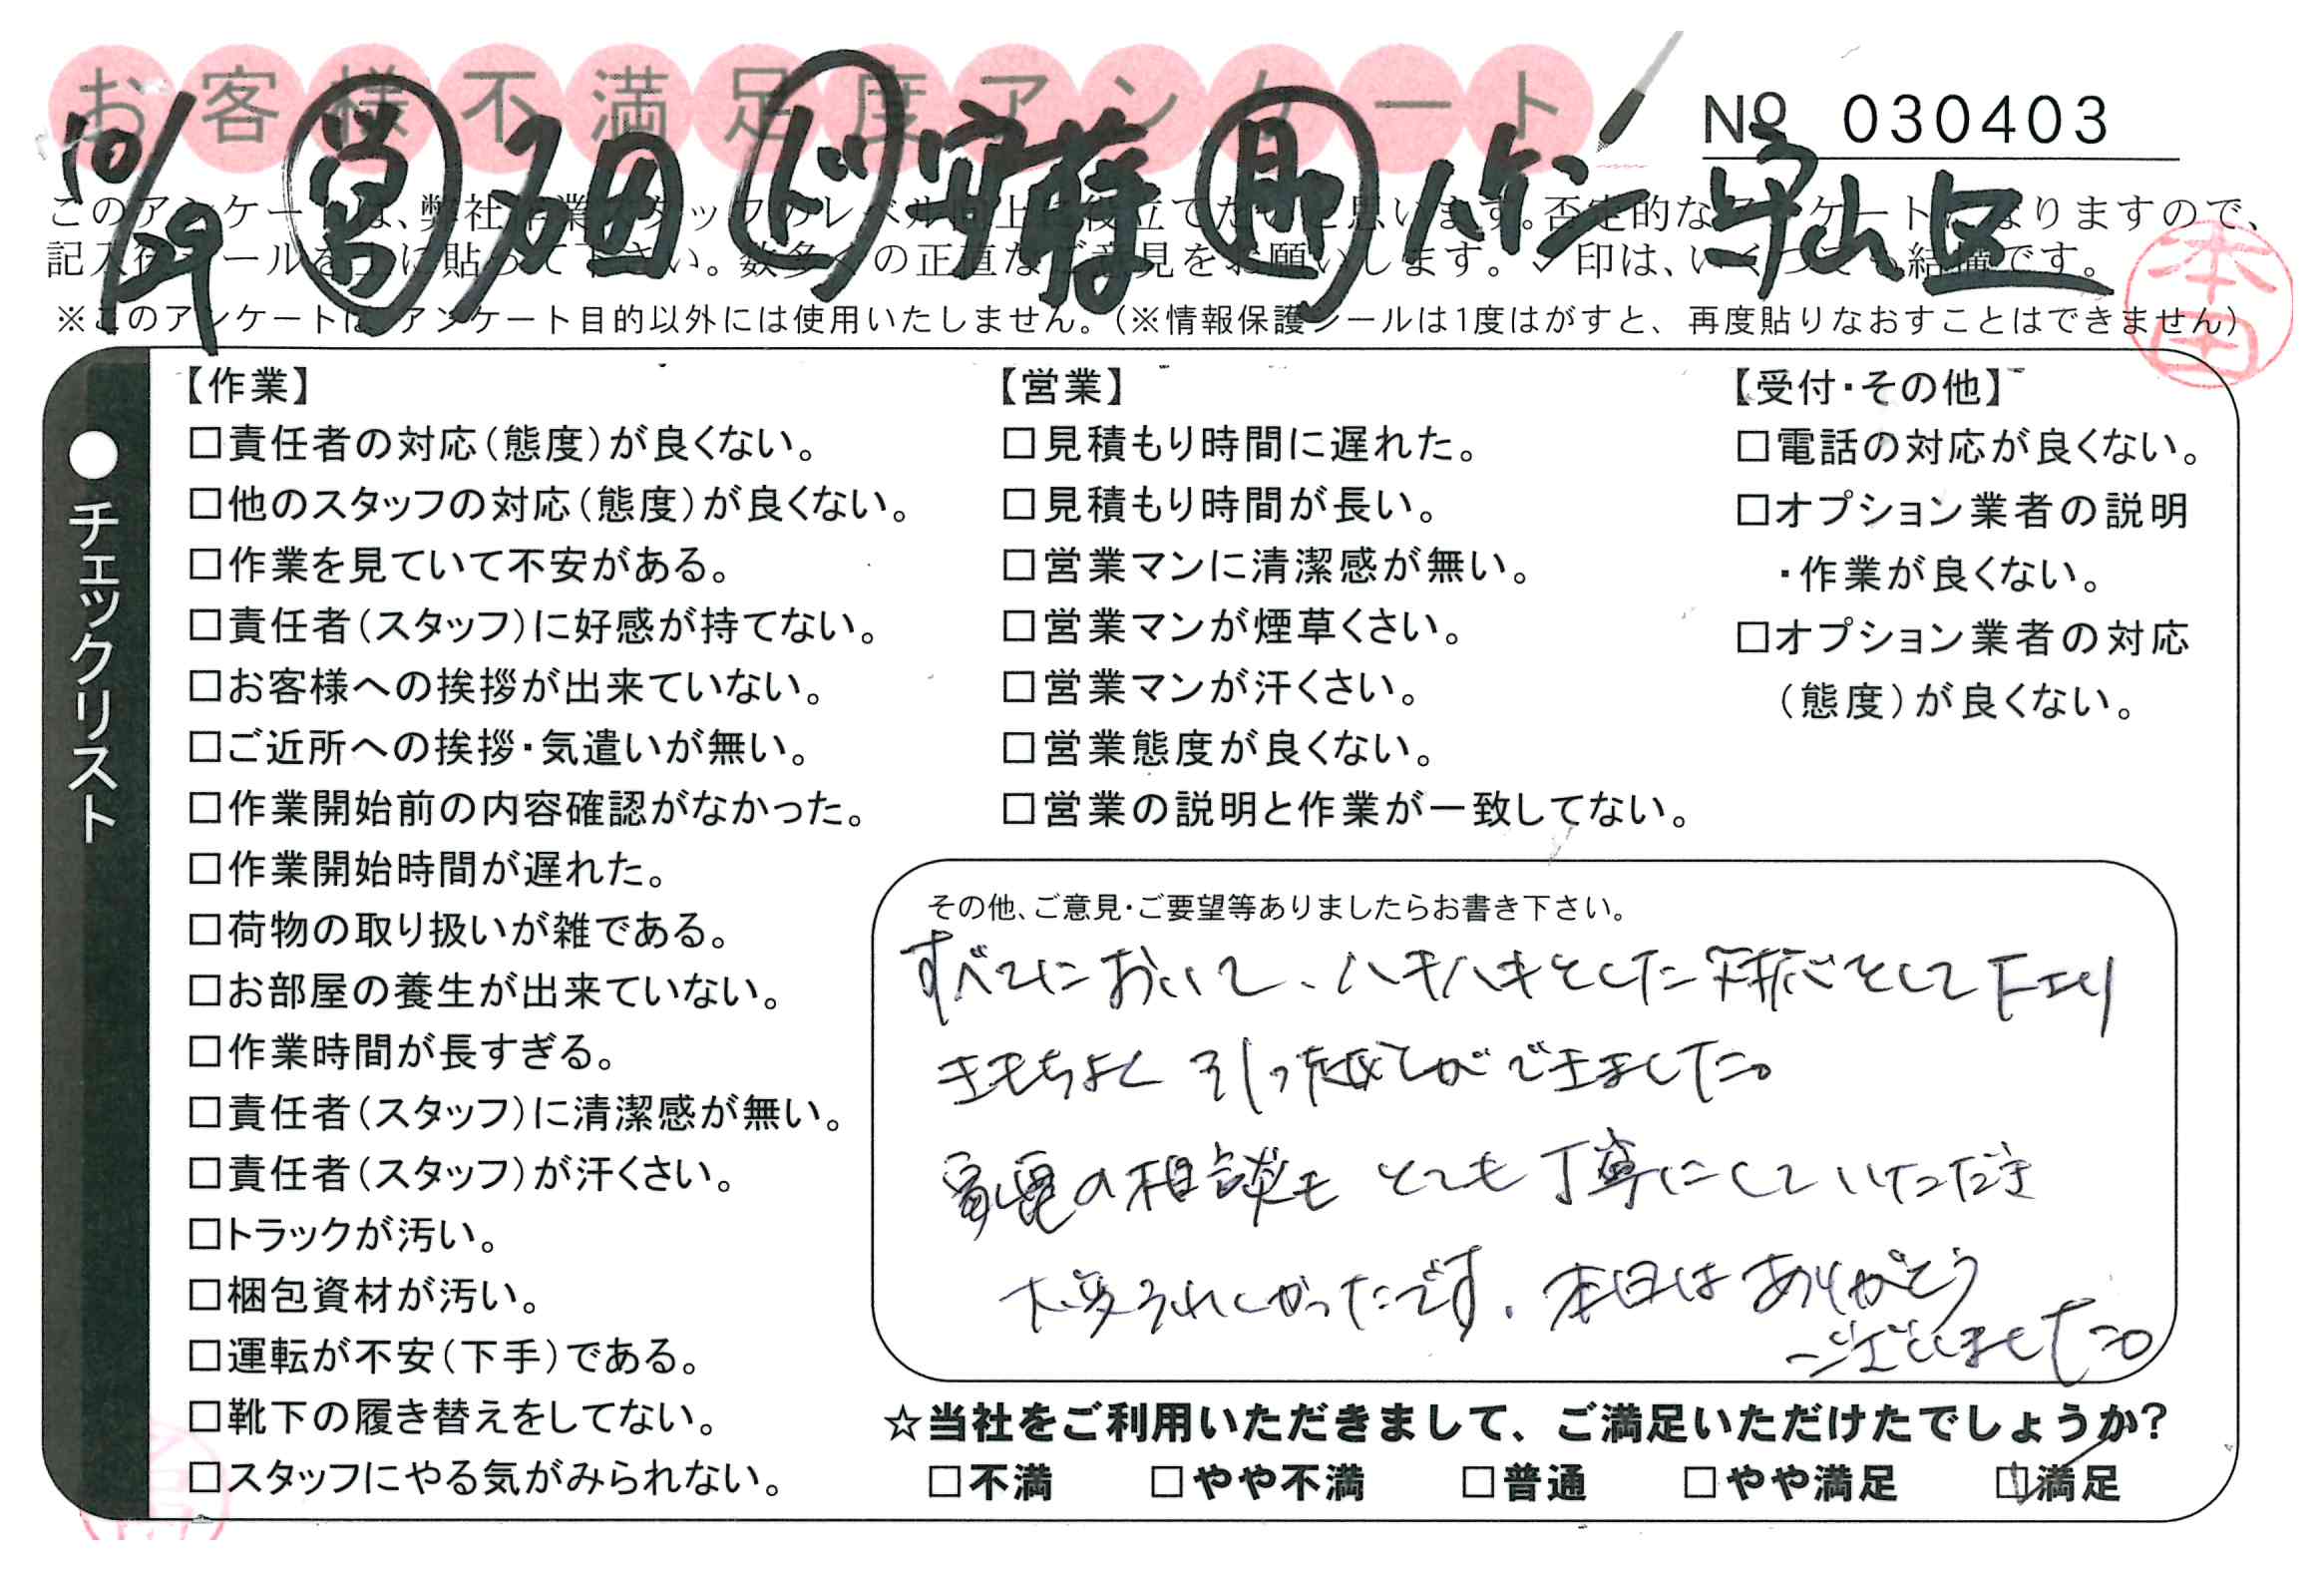 お客様不満足度アンケート
No 030403
10/29 営 多田 ド 安藤 助 バイジン 守山区
このアンケートは、弊社作業スタッフのレベル向上に役立てたいと思います。否定的なアンケートになりますので、
記入後シールを上に貼って下さい。数多くの正直なご意見をお願いします。✓印は、いくつでも結構です。
※このアンケートは、アンケート目的以外には使用いたしません。（※情報保護シールは1度はがすと、再度貼りなおすことはできません）
本田
●チェックリスト
【作業】
□責任者の対応（態度）が良くない。
□他のスタッフの対応（態度）が良くない。
□作業を見ていて不安がある。
□責任者（スタッフ）に好感が持てない。
□お客様への挨拶が出来ていない。
□ご近所への挨拶・気遣いが無い。
□作業開始前の内容確認がなかった。
□作業開始時間が遅れた。
□荷物の取り扱いが雑である。
□お部屋の養生が出来ていない。
□作業時間が長すぎる。
□責任者（スタッフ）に清潔感が無い。
□責任者（スタッフ）が汗くさい。
□トラックが汚い。
□梱包資材が汚い。
□運転が不安（下手）である。
□靴下の履き替えをしてない。
□スタッフにやる気がみられない。
【営業】
□見積もり時間に遅れた。
□見積もり時間が長い。
□営業マンに清潔感が無い。
□営業マンが煙草くさい。
□営業マンが汗くさい。
□営業態度が良くない。
□営業の説明と作業が一致してない。
【受付・その他】
□電話の対応が良くない。
□オプション業者の説明
・作業が良くない。
□オプション業者の対応
（態度）が良くない。
その他、ご意見・ご要望等ありましたらお書き下さい。
すべてにおいて、ハキハキとした対応をして下さり
きもちよく引っ越しができました。
家電の相談もとても丁寧にしていただき
大変うれしかったです。本日はありがとう
ございました。
☆当社をご利用いただきまして、ご満足いただけたでしょうか？
□不満 □やや不満 □普通 □やや満足 ☑満足